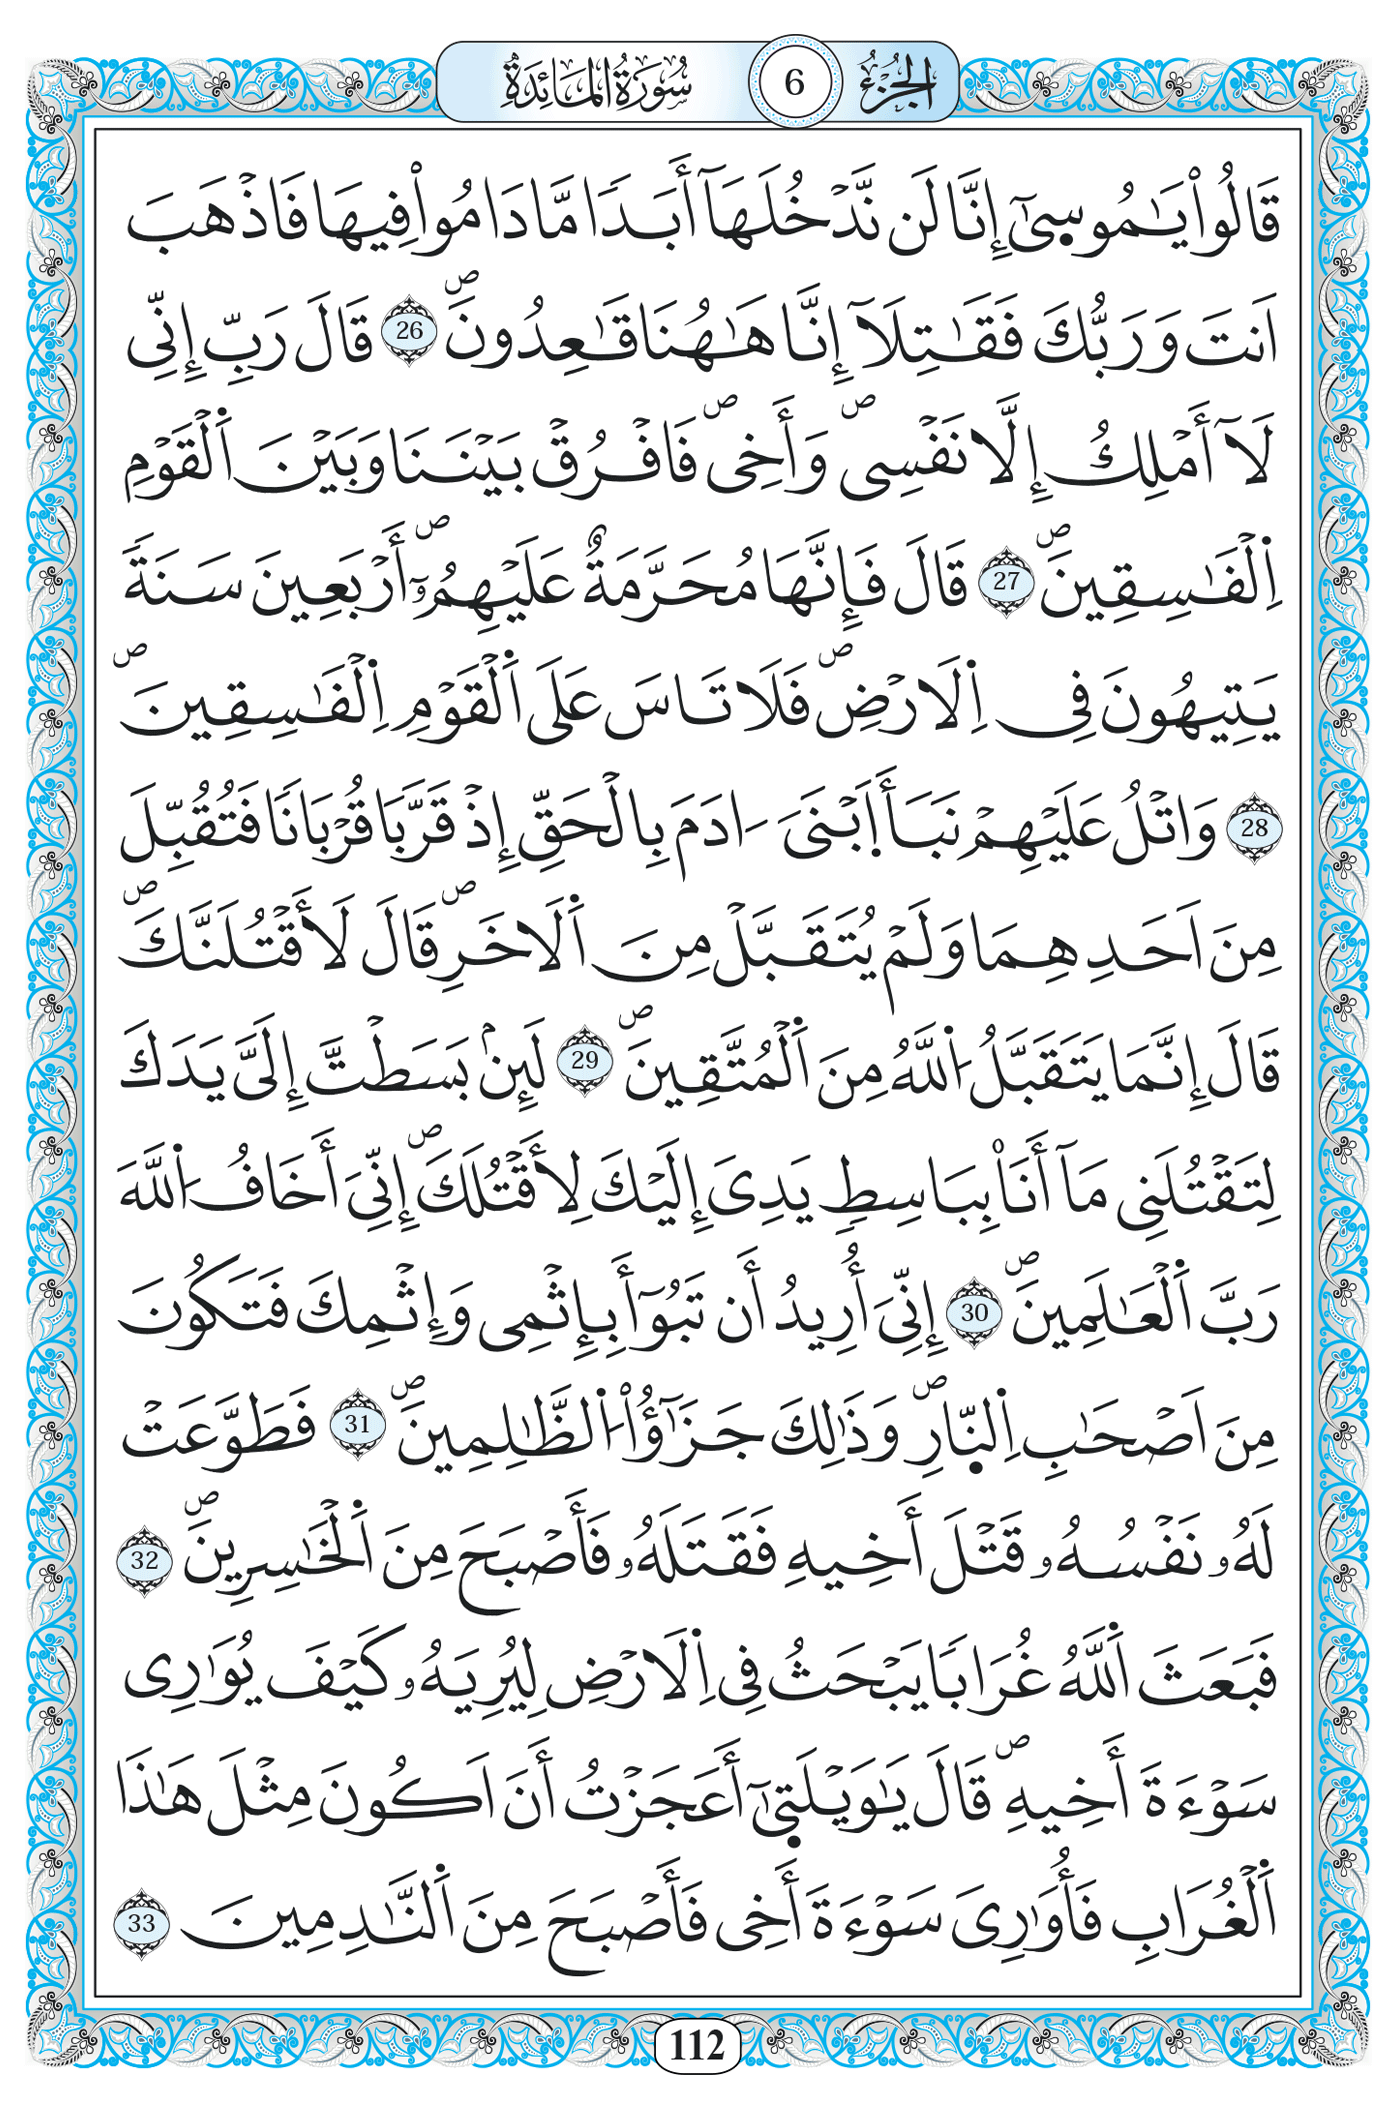 الجزء 6 سورة المائدة
قَالُواْ يَٰمُوسىٰٓ إِنَّا لَن نَّدْخُلَهَآ أَبَدَٗا مَّا دَامُواْ فِيهَا فَاذْهَبَ
اَنتَ وَرَبُّكَ فَقَٰتِلَآ إِنَّا هَٰهُنَا قَٰعِدُونَۖ 26 قَالَ رَبِّ إِنِّى
لَآ أَمْلِكُ إِلَّا نَفْسِىۖ وَأَخِىۖ فَافْرُقْ بَيْنَنَا وَبَيْنَ اَ۬لْقَوْمِ
اِ۬لْفَٰسِقِينَۖ 27 قَالَ فَإِنَّهَا مُحَرَّمَةٌ عَلَيْهِمُۥٓۖ أَرْبَعِينَ سَنَةَٗ
يَتِيهُونَ فِى اِ۬لَارْضِۖ فَلَا تَاسَ عَلَى اَ۬لْقَوْمِ اِ۬لْفَٰسِقِينَۖ
28 وَاتْلُ عَلَيْهِمْ نَبَأَ اَ۪بْنَىَ ءَادَمَ بِالْحَقِّ إِذْ قَرَّبَا قُرْبَانَٗا فَتُقُبِّلَ
مِنَ اَحَدِهِمَا وَلَمْ يُتَقَبَّلْ مِنَ اَ۬لَاخَرِۖ قَالَ لَأَقْتُلَنَّكَۖ
قَالَ إِنَّمَا يَتَقَبَّلُ اُ۬للَّهُ مِنَ اَ۬لْمُتَّقِينَۖ 29 لَئِنۢ بَسَطْتَّ إِلَىَّ يَدَكَ
لِتَقْتُلَنِى مَآ أَنَا۠ بِبَاسِطٍ يَدِىَ إِلَيْكَ لِأَقْتُلَكَۖ إِنِّىَ أَخَافُ اُ۬للَّهَ
رَبَّ اَ۬لْعَٰلَمِينَۖ 30 إِنِّىَ أُرِيدُ أَن تَبُوٓأَ بِإِثْمِى وَإِثْمِكَ فَتَكُونَ
مِنَ اَصْحَٰبِ اِ۬لنّ۪ارِۖ وَذَٰلِكَ جَزَٰٓؤُاْ اُ۬لظَّٰلِمِينَۖ 31 فَطَوَّعَتْ
لَهُۥ نَفْسُهُۥ قَتْلَ أَخِيهِ فَقَتَلَهُۥ فَأَصْبَحَ مِنَ اَ۬لْخَٰسِرِينَۖ 32
فَبَعَثَ اَ۬للَّهُ غُرَابَٗا يَبْحَثُ فِى اِ۬لَارْضِ لِيُرِيَهُۥ كَيْفَ يُوَٰرِى
سَوْءَةَ أَخِيهِۖ قَالَ يَٰوَيْلَت۪ىٰٓ أَعَجَزْتُ أَنَ اَكُونَ مِثْلَ هَٰذَا
اَ۬لْغُرَابِ فَأُوَٰرِىَ سَوْءَةَ أَخِى فَأَصْبَحَ مِنَ اَ۬لنَّٰدِمِينَ 33
112